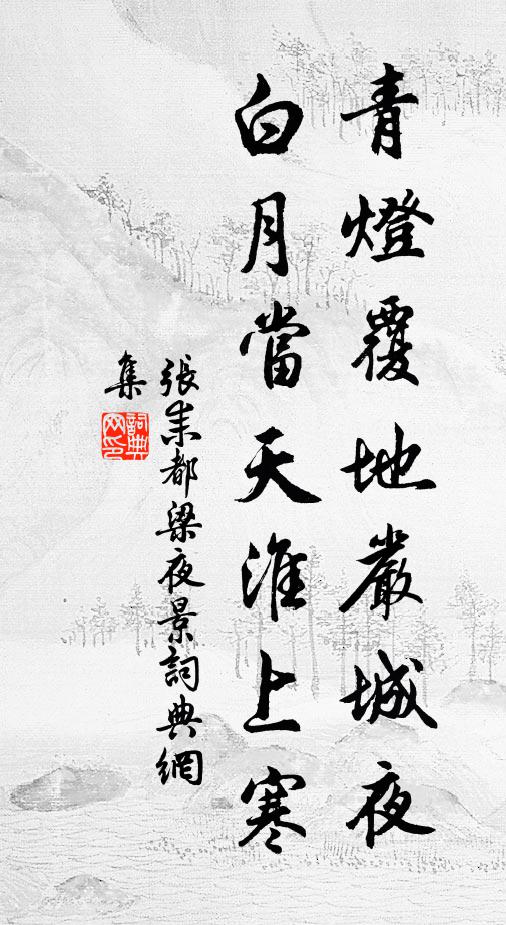 青燈覆地嚴城夜
白月當天淮上寒
張耒都梁夜景詞典網
集
詞典
网印